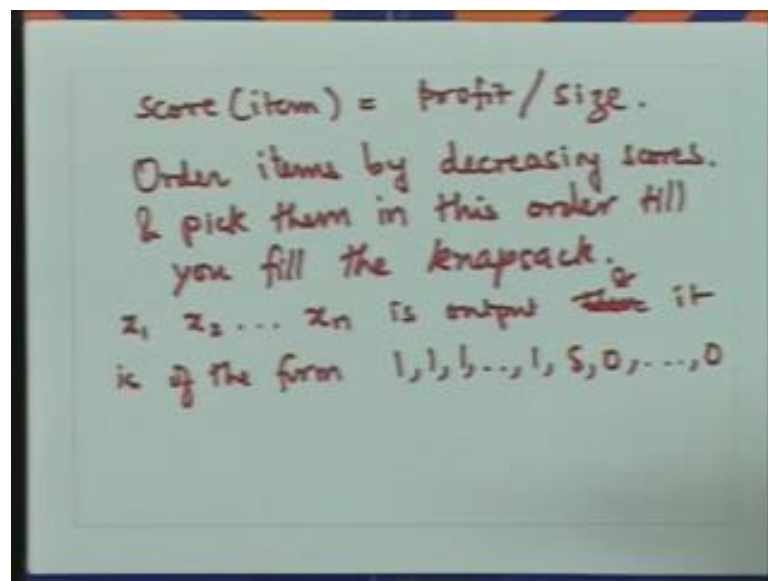 score (item) = profit / size.
Order items by decreasing scores.
& pick them in this order till
you fill the knapsack.
x₁ x₂ ... xₙ is output & it
is of the form 1,1,1,..,1, S, 0,...,0